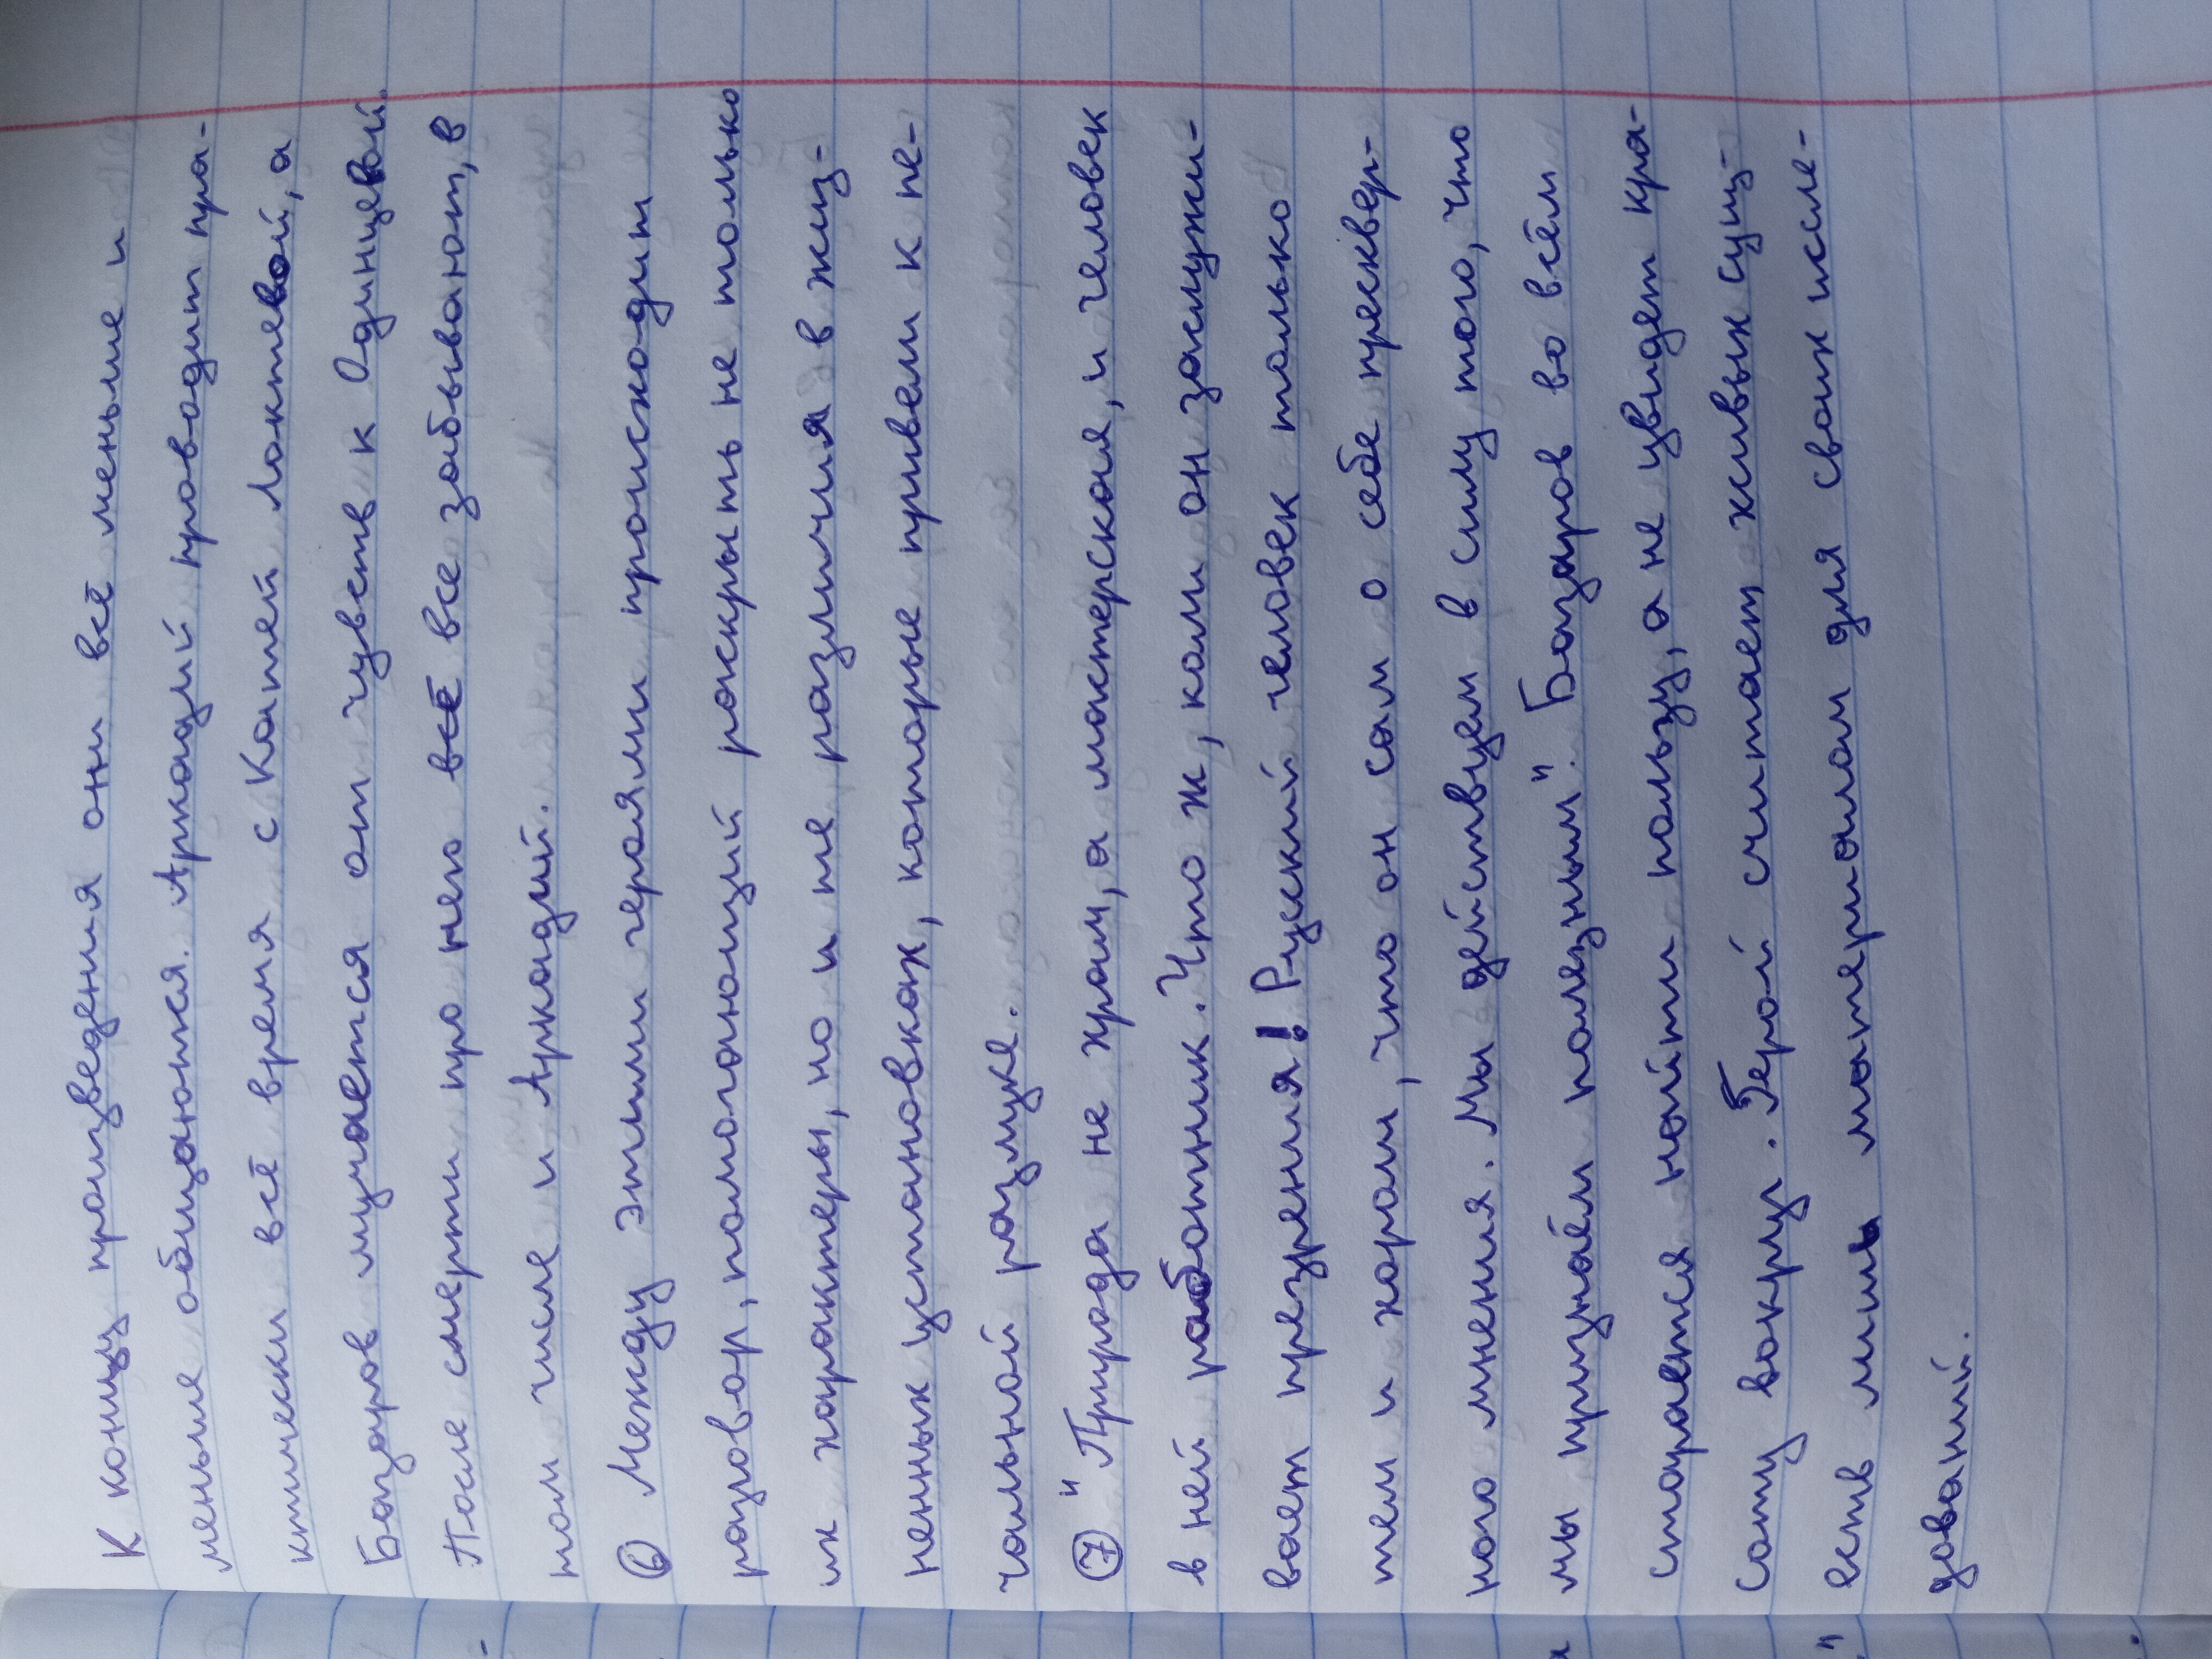 К концу произведения они всё меньше и
меньше общаются. Аркадий проводит пра-
ктически всё время с Катей Локтевой, а
Базаров мучается от чувств к Одинцовой.
После смерти про него всё все забывают, в
том числе и Аркадий.
⑥ Между этими героями происходит
разговор, помогающий раскрыть не только
их характеры, но и те различия в жиз-
ненных установках, которые привели к пе-
чальной разлуке.
⑦ "Природа не храм, а мастерская, и человек
в ней работник. Что ж, коли он заслужи-
вает презрения! Руский человек только
тем и хорош, что он сам о себе прескверн-
ного мнения. Мы действуем в силу того, что
мы признаём полезным". Базаров во всём
старается найти пользу, а не цвидет кра-
соту вокруг. Герой считает живых сущ-
еств лишь материалом для своих иссле-
дований.